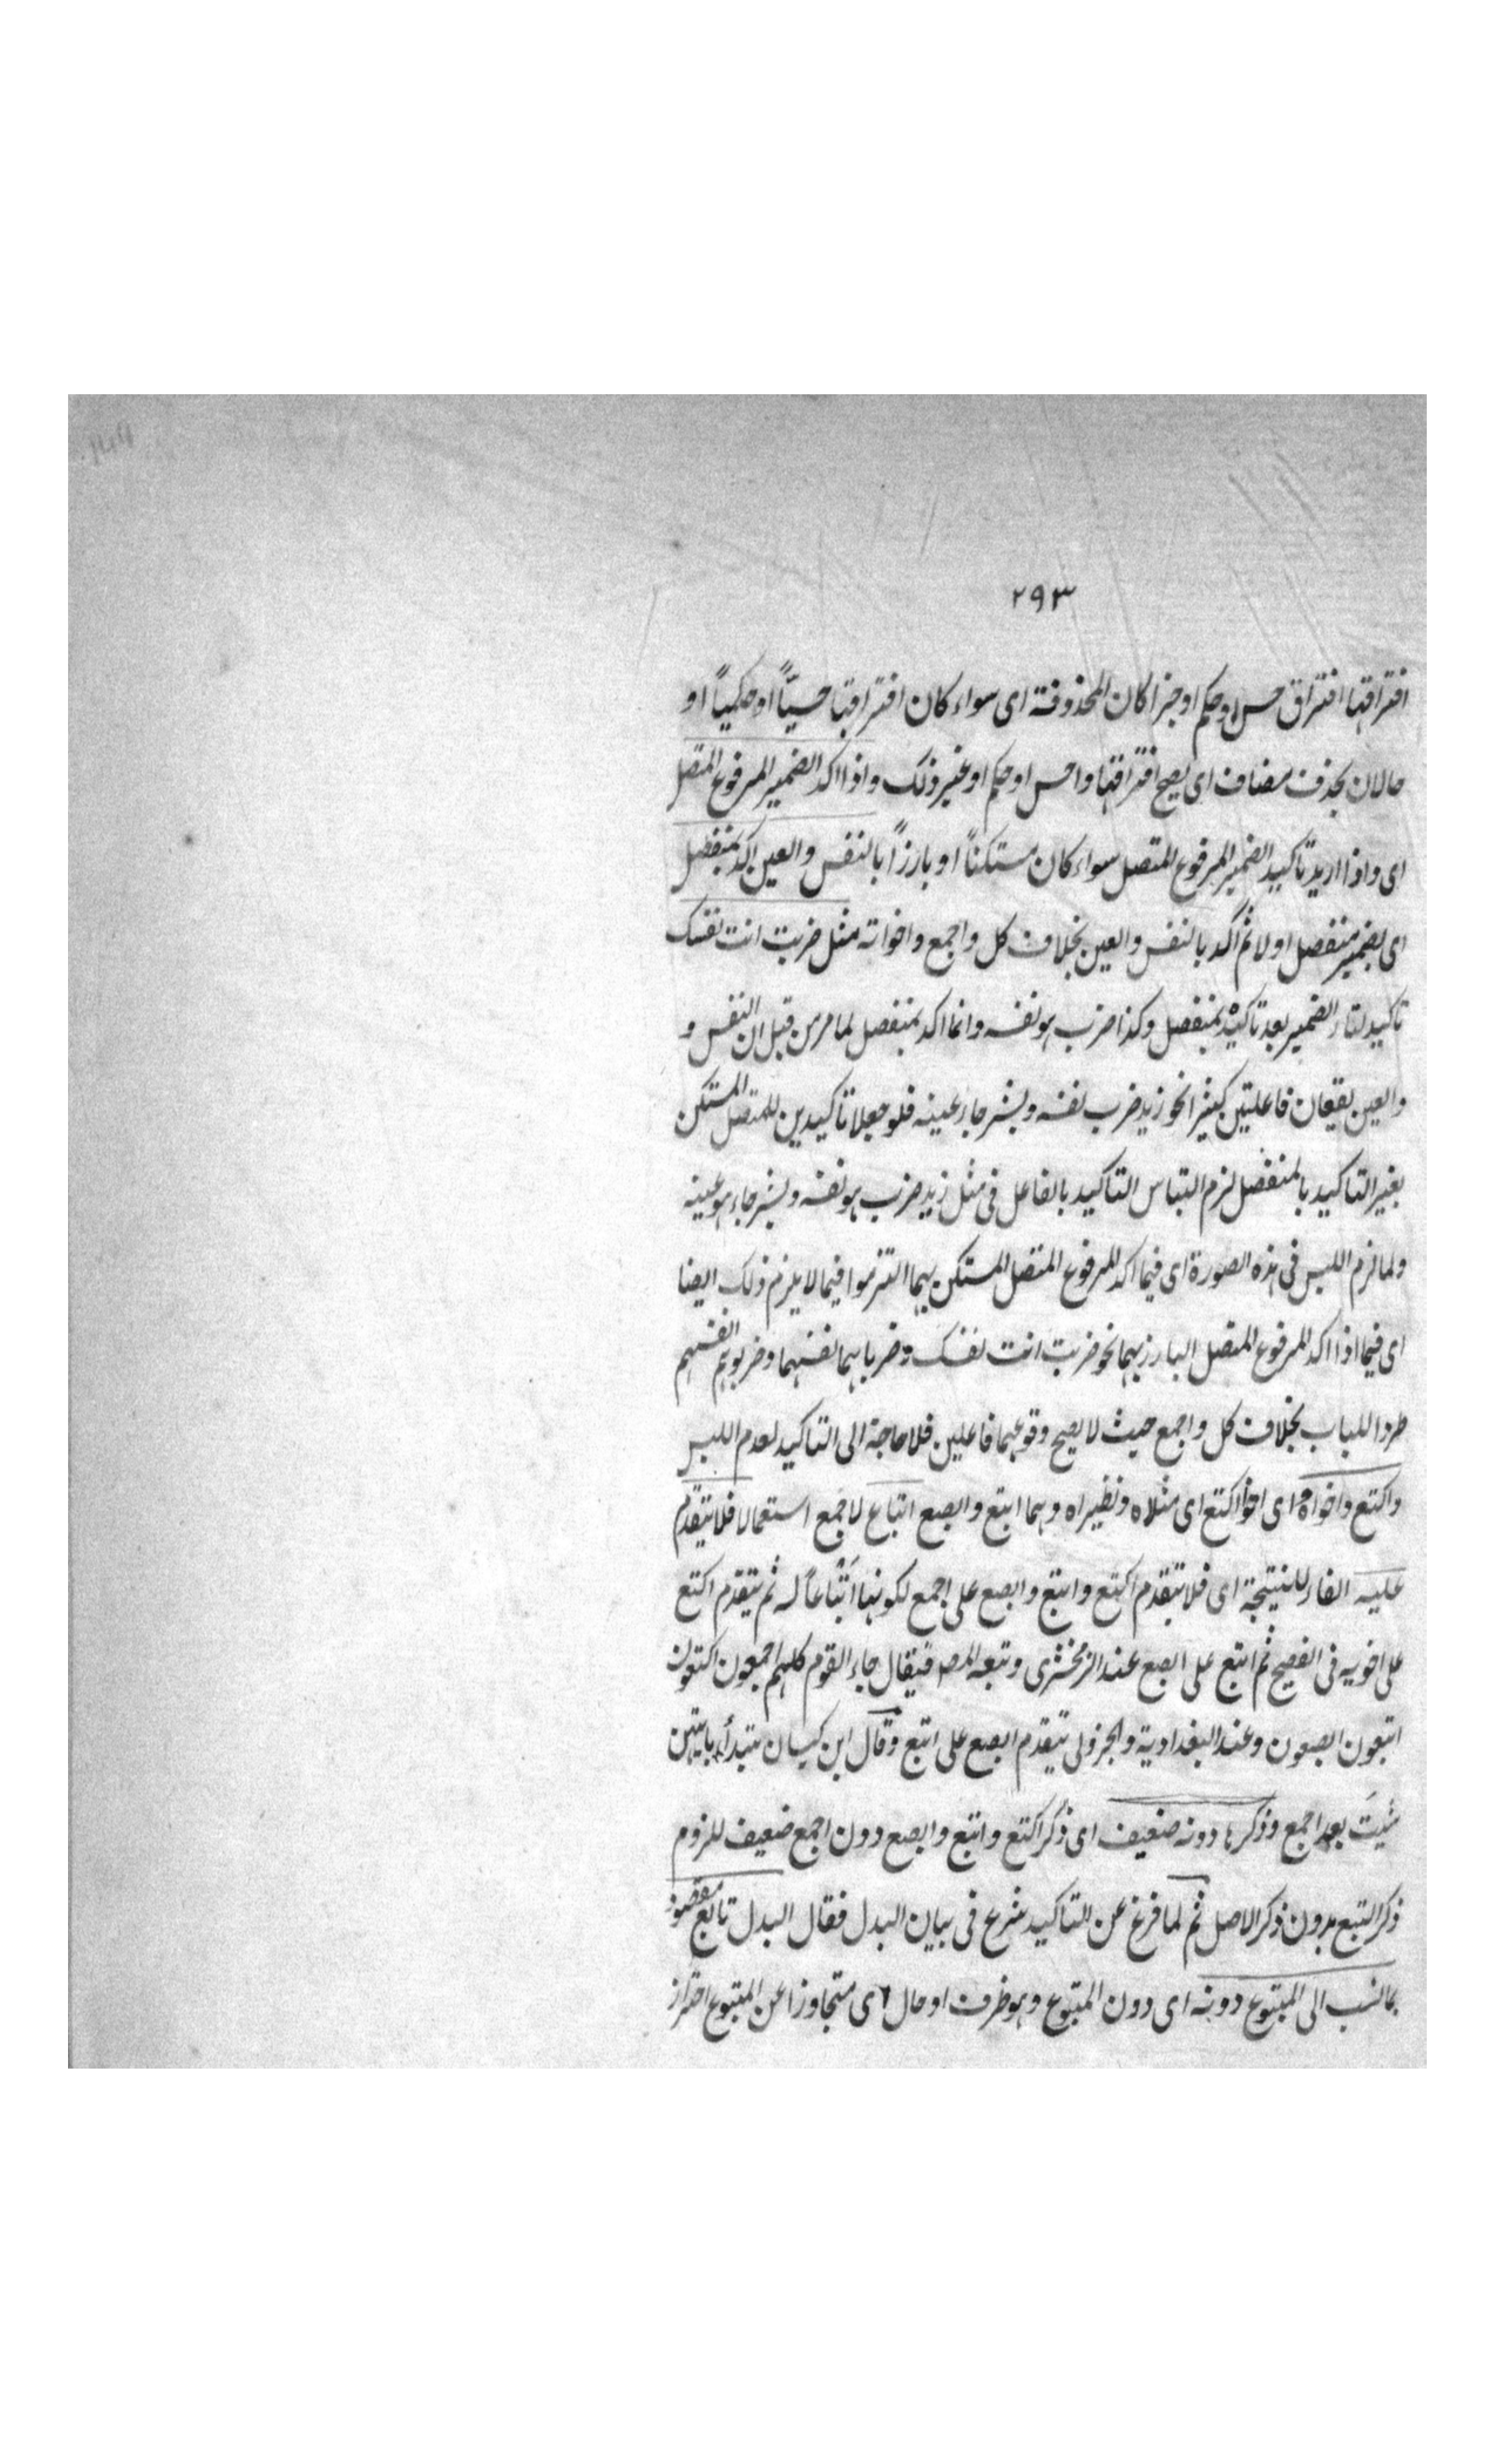 ٢٩٣
افتراقها افتراق حس او حكم او خبرا كان المحذوفة اى سواء كان افتراقها حسيّاً او حكمياً او
حالان بحذف مضاف اى يصح افتراقها واحس او حكم او غير ذلك واذا اكد الضمير المرفوع المتصل
اى واذا اريد تاكيد الضمير المرفوع المتصل سواء كان مستكناً او بارزاً بالنفس والعين اكد بمنفصل
اى بضمير منفصل اولا ثم اكد بالنفس والعين بخلاف كل واجمع واخواته مثل ضربت انت نفسك
تاكيد لتاء الضمير بعد تاكيده بمنفصل وكذا ضرب هو نفسه وانما اكد بمنفصل لما مر من قبل ان النفس و
والعين يقعان فاعلين كثيرا نحو زيد ضرب نفسه وبشر جاء عينه فلو جعلا تاكيدين للمتصل المستكن
بغير التاكيد بالمنفصل لزم التباس التاكيد بالفاعل فى مثل زيد ضرب هو نفسه وبشر جاء هو عينه
ولما لزم اللبس فى هذه الصورة اى فيما اكد المرفوع المتصل المستكن بهما التزموا فيما لا يلزم ذلك ايضا
اى فيما اذا اكد المرفوع المتصل البارز بهما نحو ضربت انت نفسك وضربا هما نفسهما وضربوا هم انفسهم
طردا للباب بخلاف كل واجمع حيث لا يصح وقوعهما فاعلين فلا حاجة الى التاكيد لعدم اللبس
واكتع واخواه اى اخوا اكتع اى مثلاه ونظيراه وهما ابتع وابصع اتباع لاجمع استعمالا فلا يتقدم
عليه الفاء للنتيجة اى فلا يتقدم اكتع وابتع وابصع على اجمع لكونها اتباعاً له ثم يتقدم اكتع
على اخويه فى الفصيح ثم ابتع على ابصع عند الزمخشرى وتبعه المص فيقال جاء القوم كلهم اجمعون اكتعون
ابتعون ابصعون وعند البغدادية والجزولى يتقدم ابصع على ابتع وقال ابن كيسان تبتدأ بايتهن
شيتَ بعد اجمع وذكرها دونه ضعيف اى ذكر اكتع وابتع وابصع دون اجمع ضعيف للزوم
ذكر التبع بدون ذكر الاصل ثم لما فرغ عن التاكيد شرع فى بيان البدل فقال البدل تابع مقصود
بما نسب الى المتبوع دونه اى دون المتبوع وهو ظرف او حال اى متجاوزا عن المتبوع احتراز